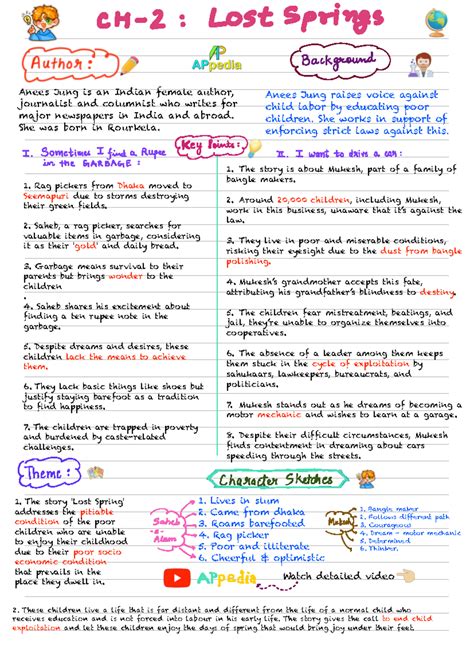 CH-2 : Lost Springs
Author :
APpedia
Background
Anees Jung is an Indian female author,
journalist and columnist who writes for
major newspapers in India and abroad.
She was born in Rourkela.
Anees Jung raises voice against
child labor by educating poor
children. She works in support of
enforcing strict laws against this.
Key Points :
I. Sometimes I find a Rupee
in the GARBAGE :
1. Rag pickers from Dhaka moved to
Seemapuri due to storms destroying
their green fields.
2. Saheb, a rag picker, searches for
valuable items in garbage, considering
it as their 'gold' and daily bread.
3. Garbage means survival to their
parents but brings wonder to the
children
.
4. Saheb shares his excitement about
finding a ten rupee note in the
garbage.
5. Despite dreams and desires, these
children lack the means to achieve
them.
6. They lack basic things like shoes but
justify staying barefoot as a tradition
to find happiness.
7. The children are trapped in poverty
and burdened by caste-related
challenges.
II. I want to drive a car :
1. The story is about Mukesh, part of a family of
bangle makers.
2. Around 20,000 children, including Mukesh,
work in this business, unaware that it's against the
law.
3. They live in poor and miserable conditions,
risking their eyesight due to the dust from bangle
polishing.
4. Mukesh's grandmother accepts this fate,
attributing his grandfather's blindness to destiny.
5. The children fear mistreatment, beatings, and
jail, they're unable to organize themselves into
cooperatives.
6. The absence of a leader among them keeps
them stuck in the cycle of exploitation by
sahukaars, lawkeepers, bureaucrats, and
politicians.
7. Mukesh stands out as he dreams of becoming a
motor mechanic and wishes to learn at a garage.
8. Despite their difficult circumstances, Mukesh
finds contentment in dreaming about cars
speeding through the streets.
Theme :
1, The story 'Lost Spring'
addresses the pitiable
condition of the poor
children who are unable
to enjoy their childhood
due to their poor socio
economic condition
that prevails in the
place they dwell in.
Character Sketches
Saheb-e-
Alam
1. Lives in slum
2. Came from dhaka
3. Roams barefooted
4. Rag picker
5. Poor and illiterate
6. Cheerful & optimistic
Mukesh
1. Bangle maker
2. Follows different path
3. Courageous
4. Dream - motor mechanic
5. Determined
6. Thinker.
APpedia
Watch detailed video
2. These children live a life that is far distant and different from the life of a normal child who
receives education and is not forced into labour in his early life. The story gives the call to end child
exploitation and let these children enjoy the days of spring that would bring joy under their feet.